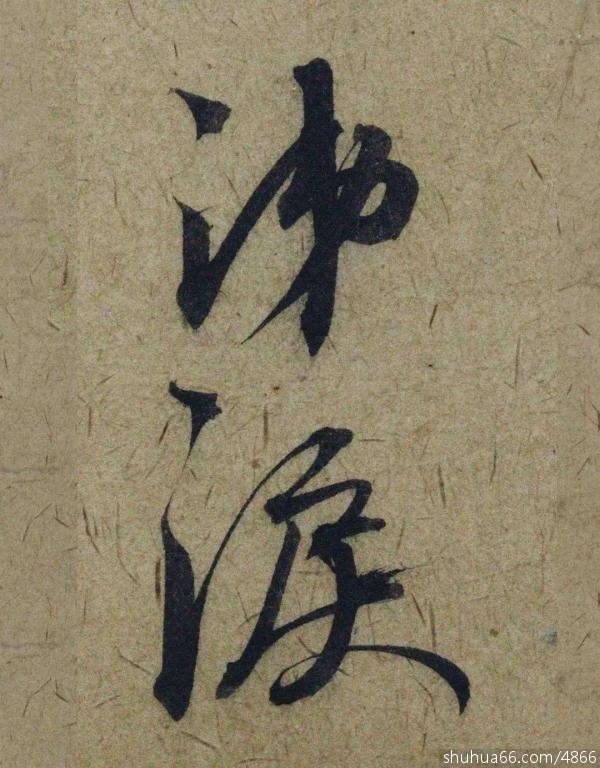 涕
淚
shuhua66.com/4866